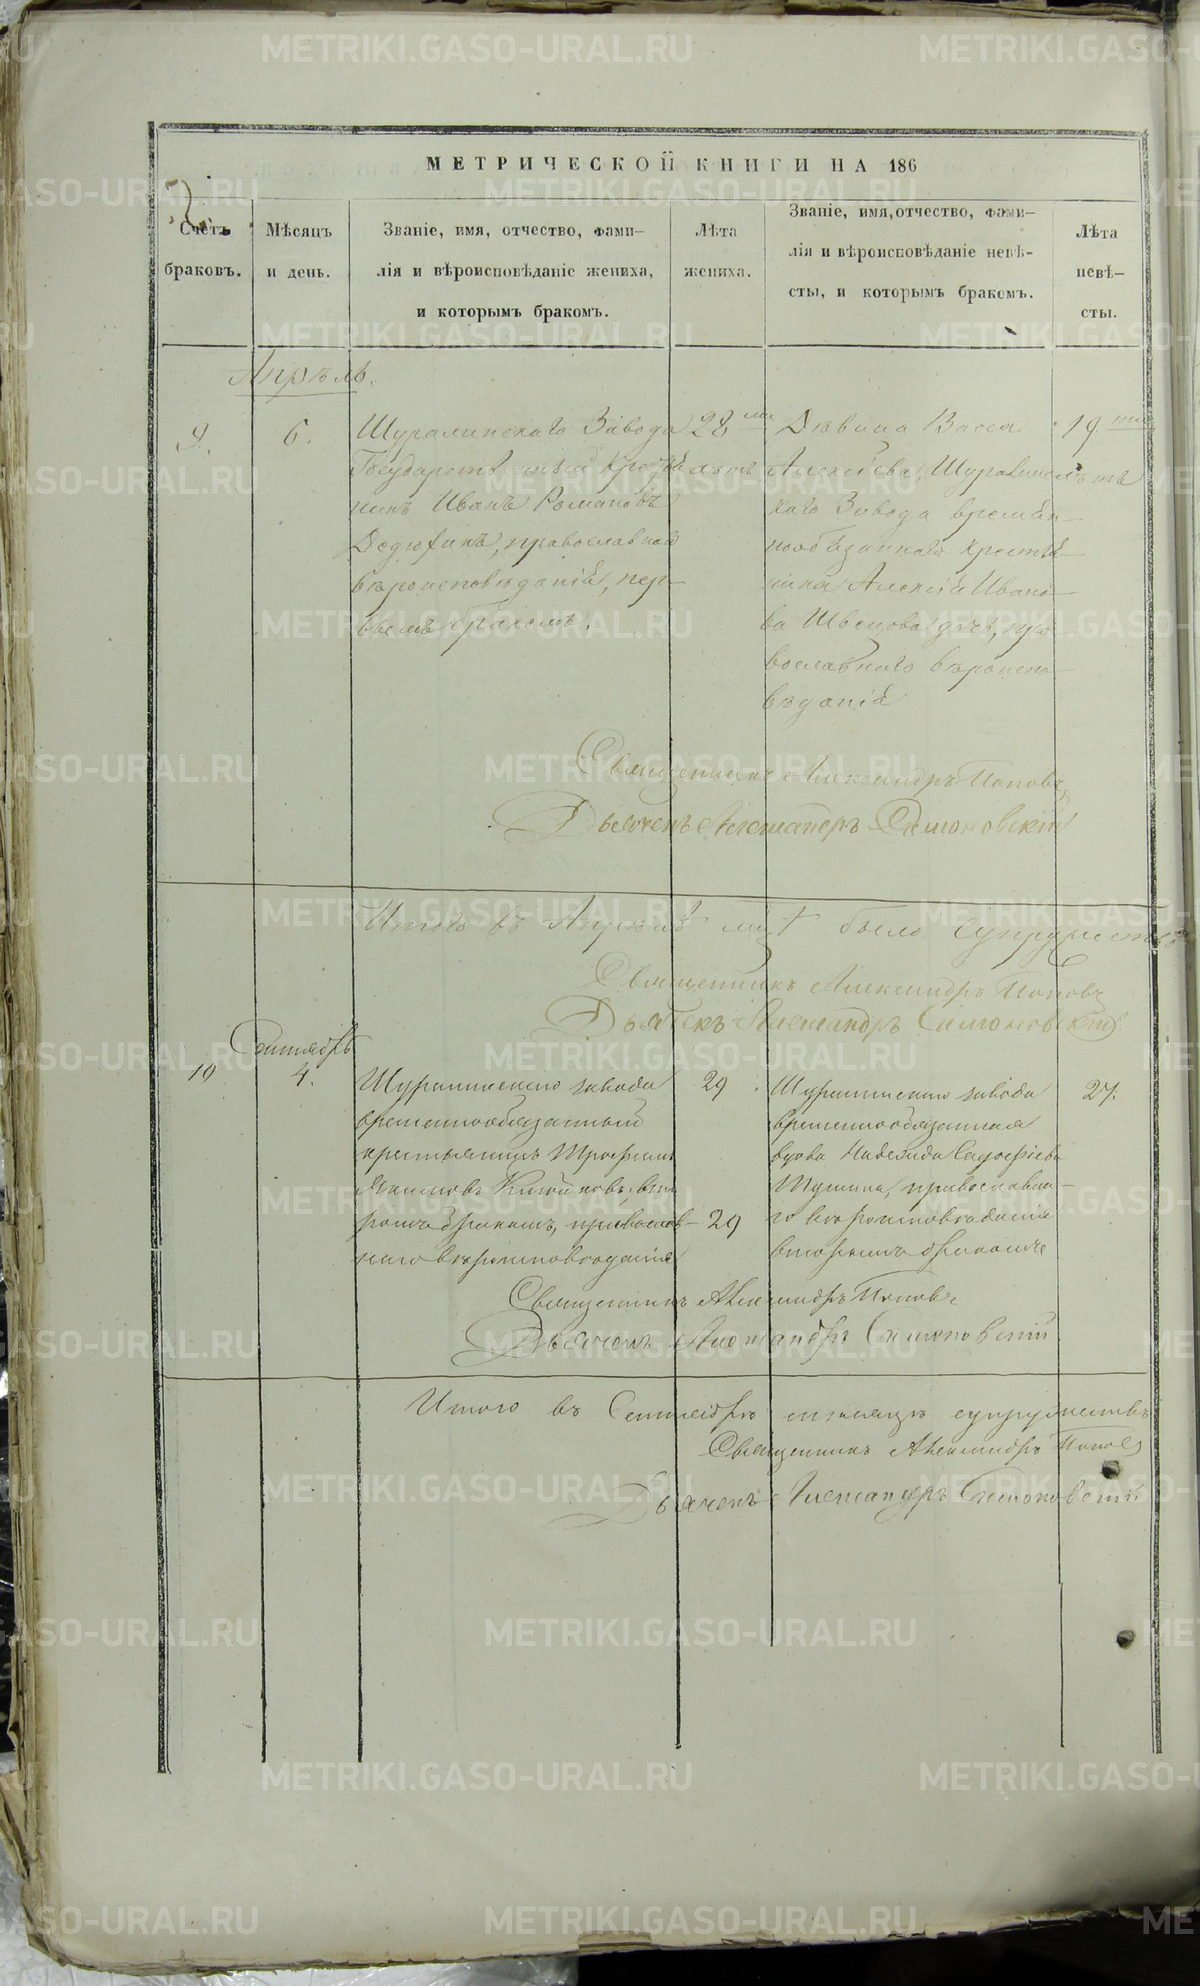 МЕТРИЧЕСКОЙ КНИГИ НА 186
Счетъ
браковъ.
Мѣсяцъ
и день.
Званіе, имя, отчество, фами-
лія и вѣроисповѣданіе жениха,
и которымъ бракомъ.
Лѣта
жениха.
Званіе, имя, отчество, фами-
лія и вѣроисповѣданіе невѣ-
сты, и которымъ бракомъ.
Лѣта
невѣ-
сты.
Апрѣль.
9.
6.
Шуралинскаго Завода
Государственный Крестья
нинъ Иванъ Романовъ
Дедюхинъ, православнаго
вѣроисповѣданія, пер-
вымъ бракомъ.
28
лѣтъ
Дѣвица Васса
Алексѣева, Шуралинс
каго Завода времен-
нообязаннаго крестья-
нина Алексѣя Ивано-
ва Швецова дочь, пра
вославнаго вѣроиспо-
вѣданія
19
лѣтъ
Священникъ Александръ Поповъ
Дьячекъ Александръ Симоновскій
Итого въ Апрѣлѣ мцѣ было супружествъ
Священникъ Александръ Поповъ
Дьячекъ Александръ Симоновскій
Сентябрь
10
4.
Шуралинскаго завода
временнообязанный
крестьянинъ Трофимъ
Якимовъ вто
рымъ бракомъ, православ-
наго вѣроисповѣданія
29
29
Шуралинскаго завода
временнообязанная
вдова Надежда
православна-
го вѣроисповѣданія
вторымъ бракомъ
27.
Священникъ Александръ Поповъ
Дьячекъ Александръ Симоновскій
Итого въ Сентябрѣ мѣсяцѣ супружествъ
Священникъ Александръ Поповъ
Дьячекъ Александръ Симоновскій
METRIKI.GASO-URAL.RU